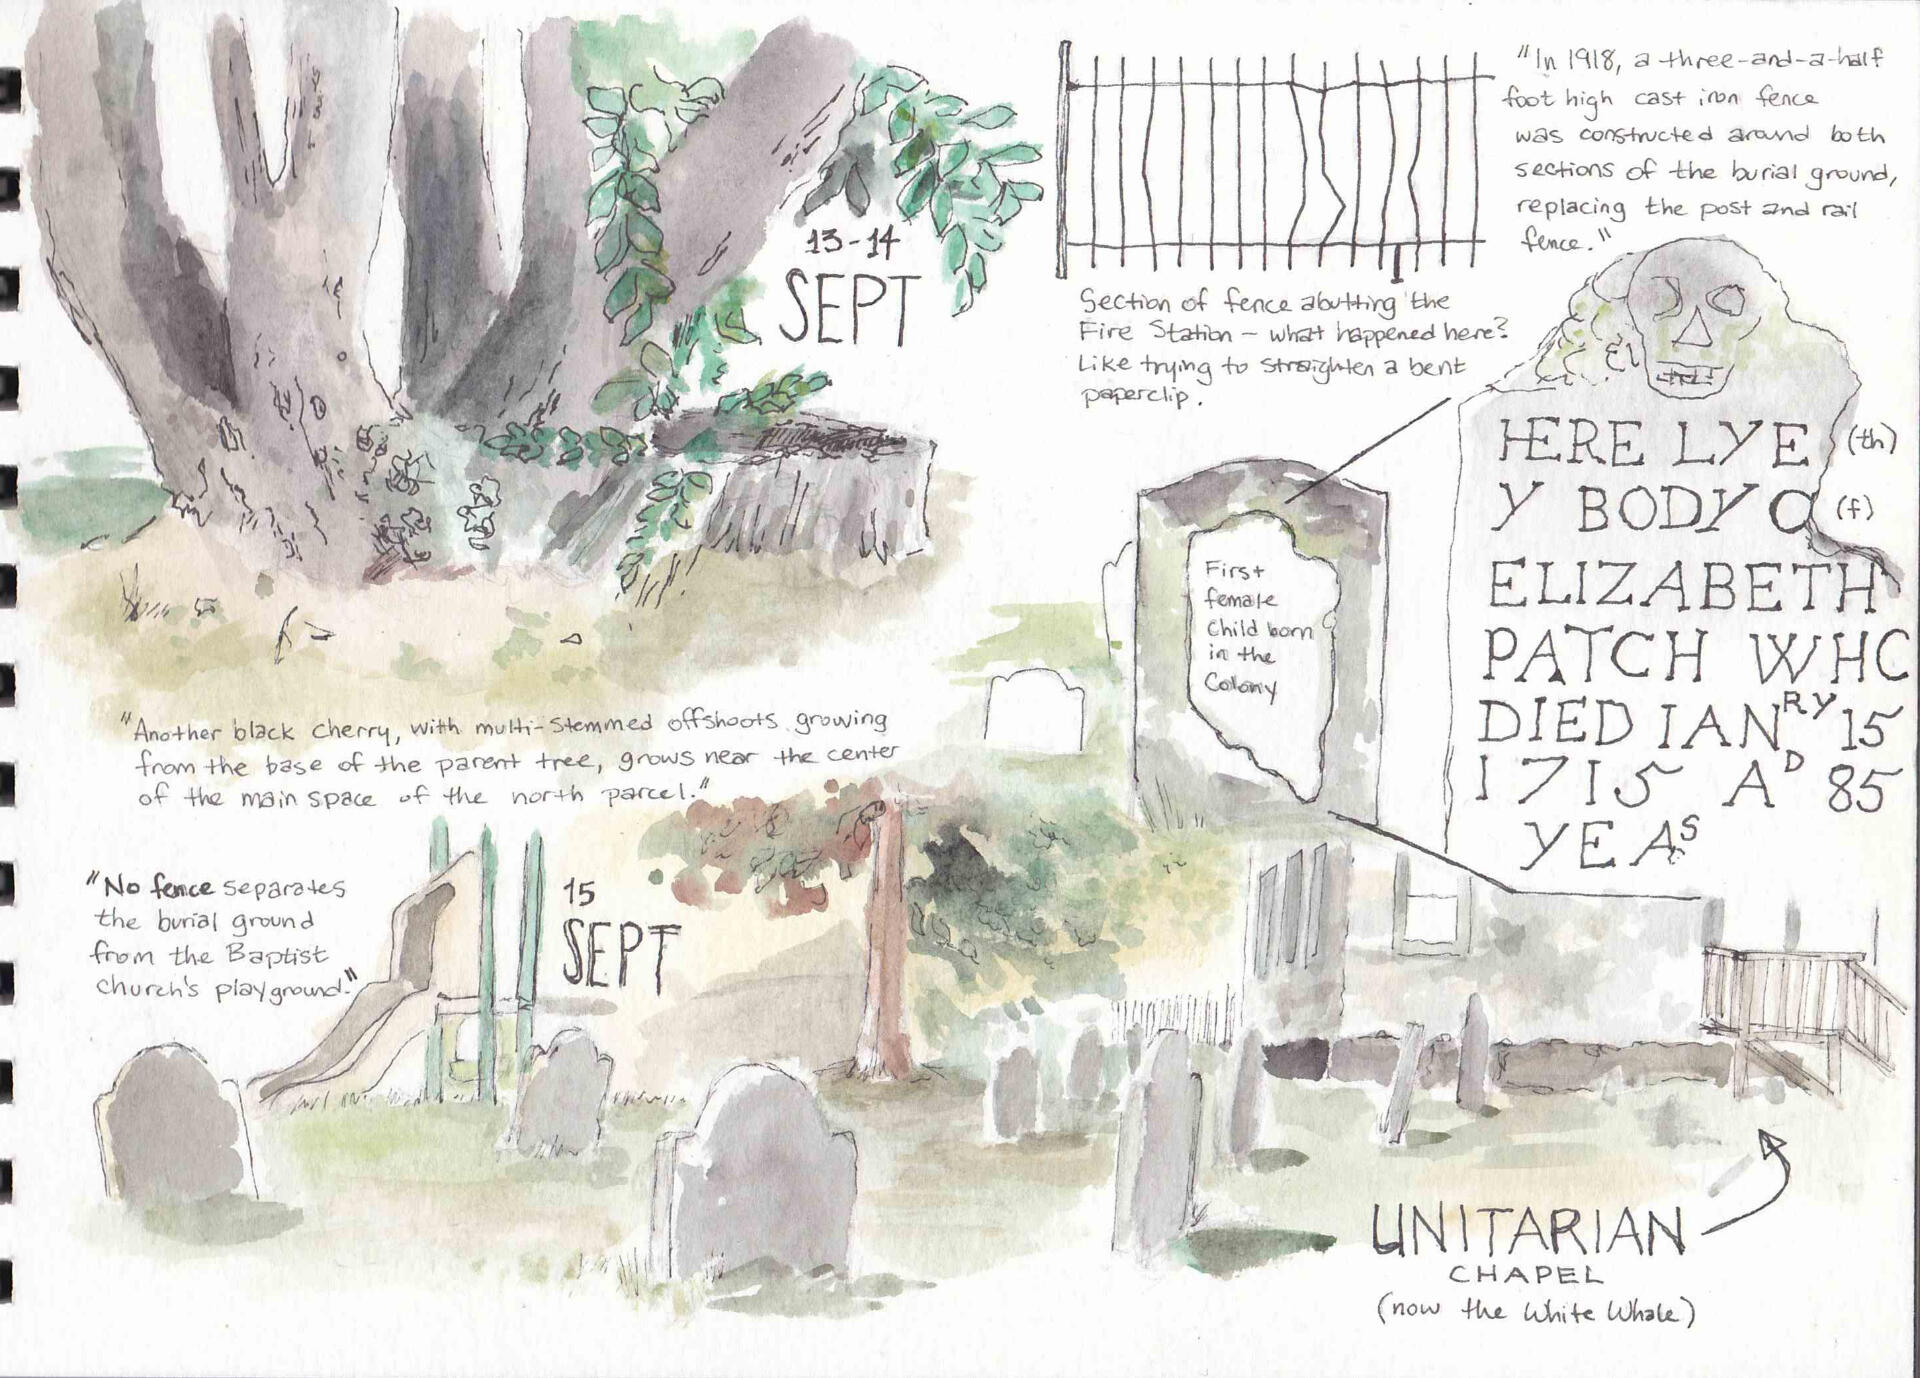 13-14
SEPT
"In 1918, a three-and-a-half
foot high cast iron fence
was constructed around both
sections of the burial ground,
replacing the post and rail
fence."
Section of fence abutting the
Fire Station - what happened here?
Like trying to straighten a bent
paperclip.
HERE LYE (th)
Y BODY O (f)
ELIZABETH
PATCH WHO
DIED IANRY 15
1715 AD 85
YEAS
First
female
Child born
in the
Colony
"Another black cherry, with multi-stemmed offshoots growing
from the base of the parent tree, grows near the center
of the main space of the north parcel."
"No fence separates
the burial ground
from the Baptist
church's playground."
15
SEPT
UNITARIAN
CHAPEL
(now the White Whale)